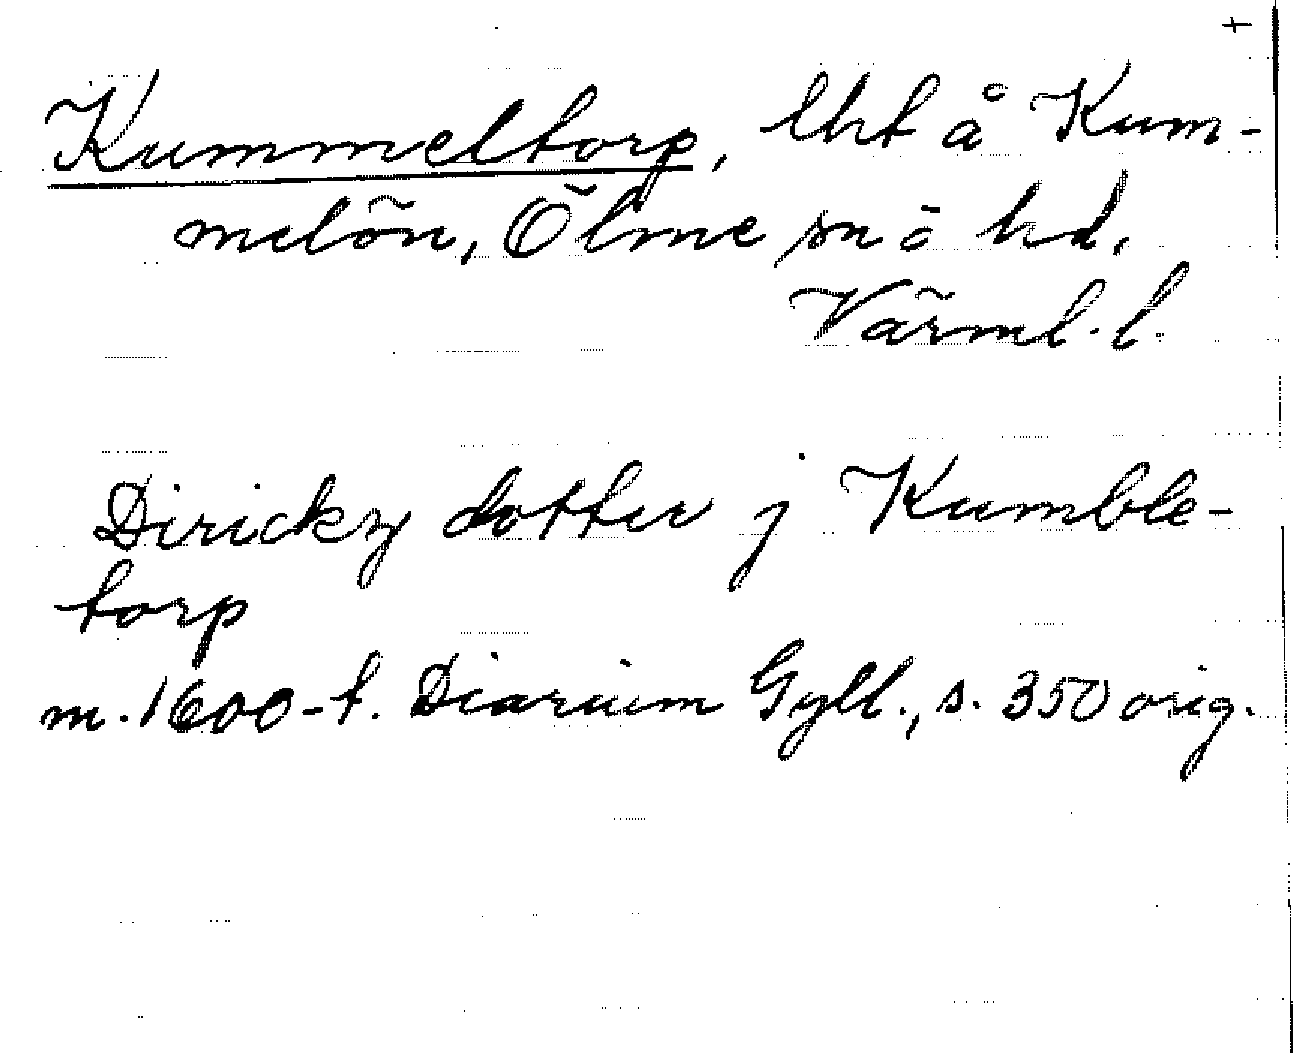 +
Kummeltorp, lht å Kum-
melön, Ölme sn o hd,
Värml. l.
Diricky dotter j Kumble-
torp
m. 1600-t. Diarium Gyll., s. 350 orig.